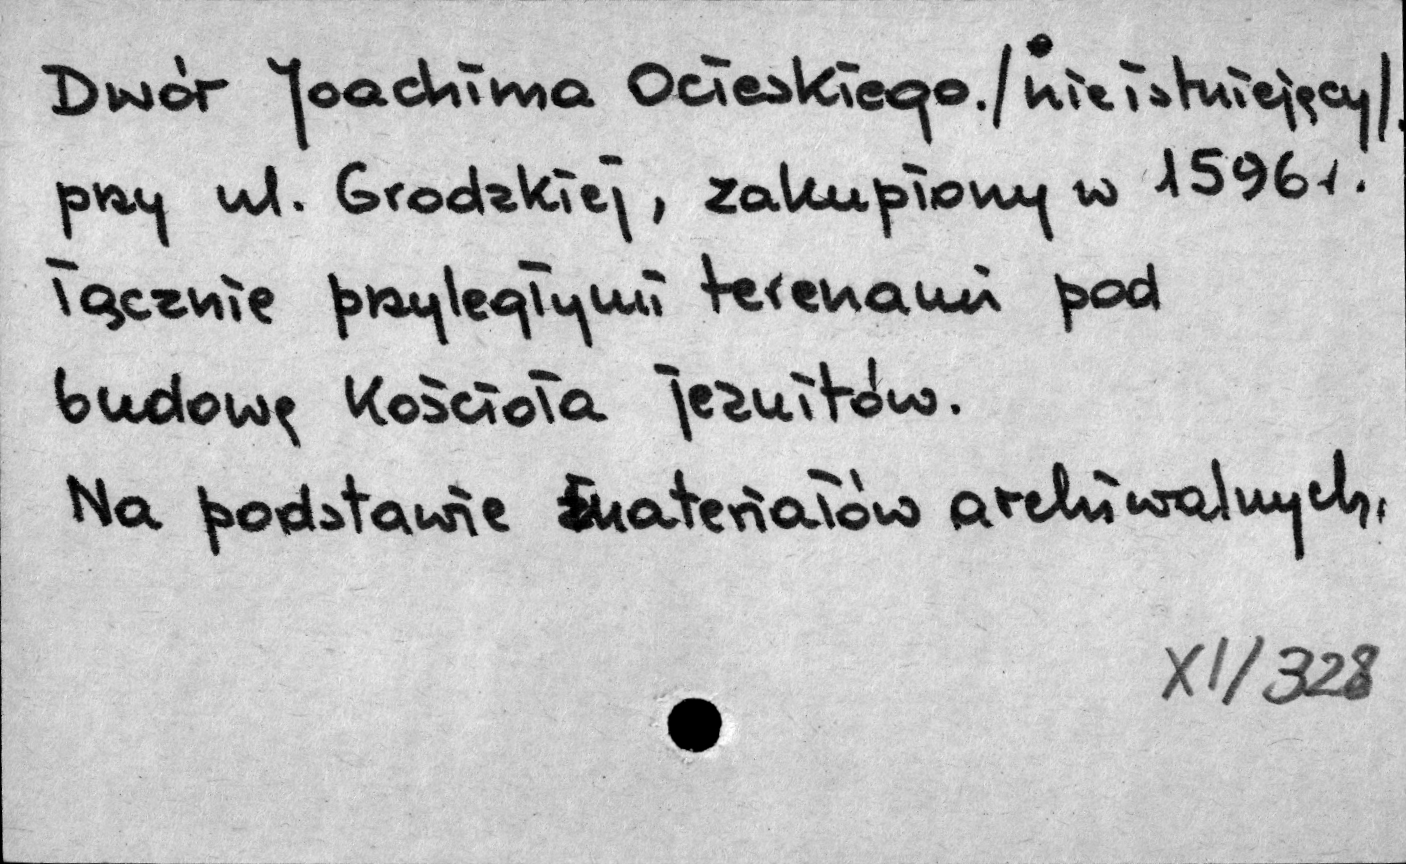 Dwór Joachima Ocieskiego./nieistniejący/.
przy ul. Grodzkiej, zakupiony w 1596 r.
łącznie przyległymi terenami pod
budowę Kościoła jezuitów.
Na podstawie materiałów archiwalnych,
XI/328